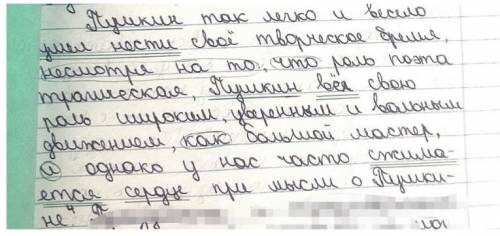 Пушкин так легко и весело
умел нести своё творческое бремя,
несмотря на то, что роль поэта
трагическая, Пушкин вёл свою
роль широким, уверенным и вольным
движением, как большой мастер,
а однако у нас часто сжима-
ется сердце при мысли о Пушки-
не